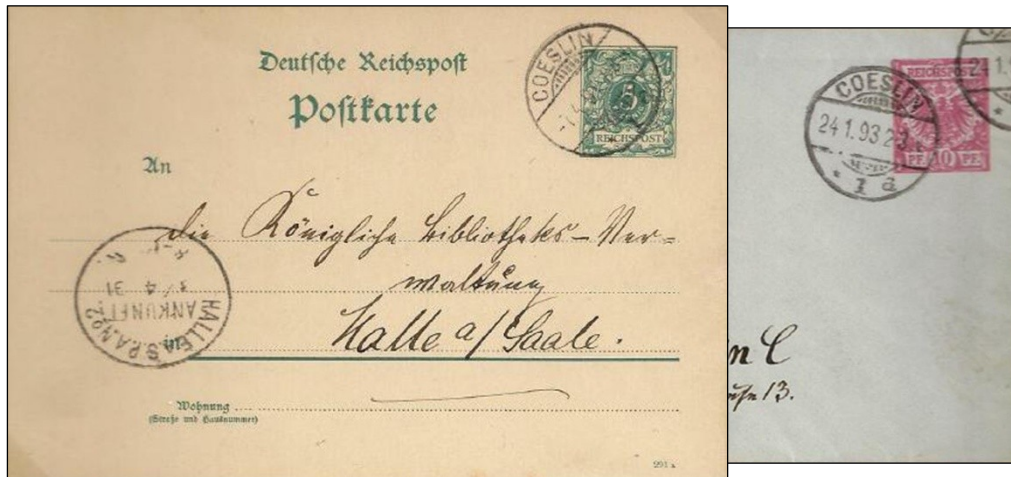 Deutsche Reichspost
Postkarte
COESLIN
5
REICHSPOST
An
die Königliche Bibliotheks-Ver=
waltung
in Halle a/Saale.
HALLE A.S.P.A.No2
ANKUNFT
4 31
Wohnung
(Straße und Hausnummer)
COESLIN
24 1. 93 2-3
* 1 d
REICHSPOST
PF. 10 PF.
24 1.
n C
13.